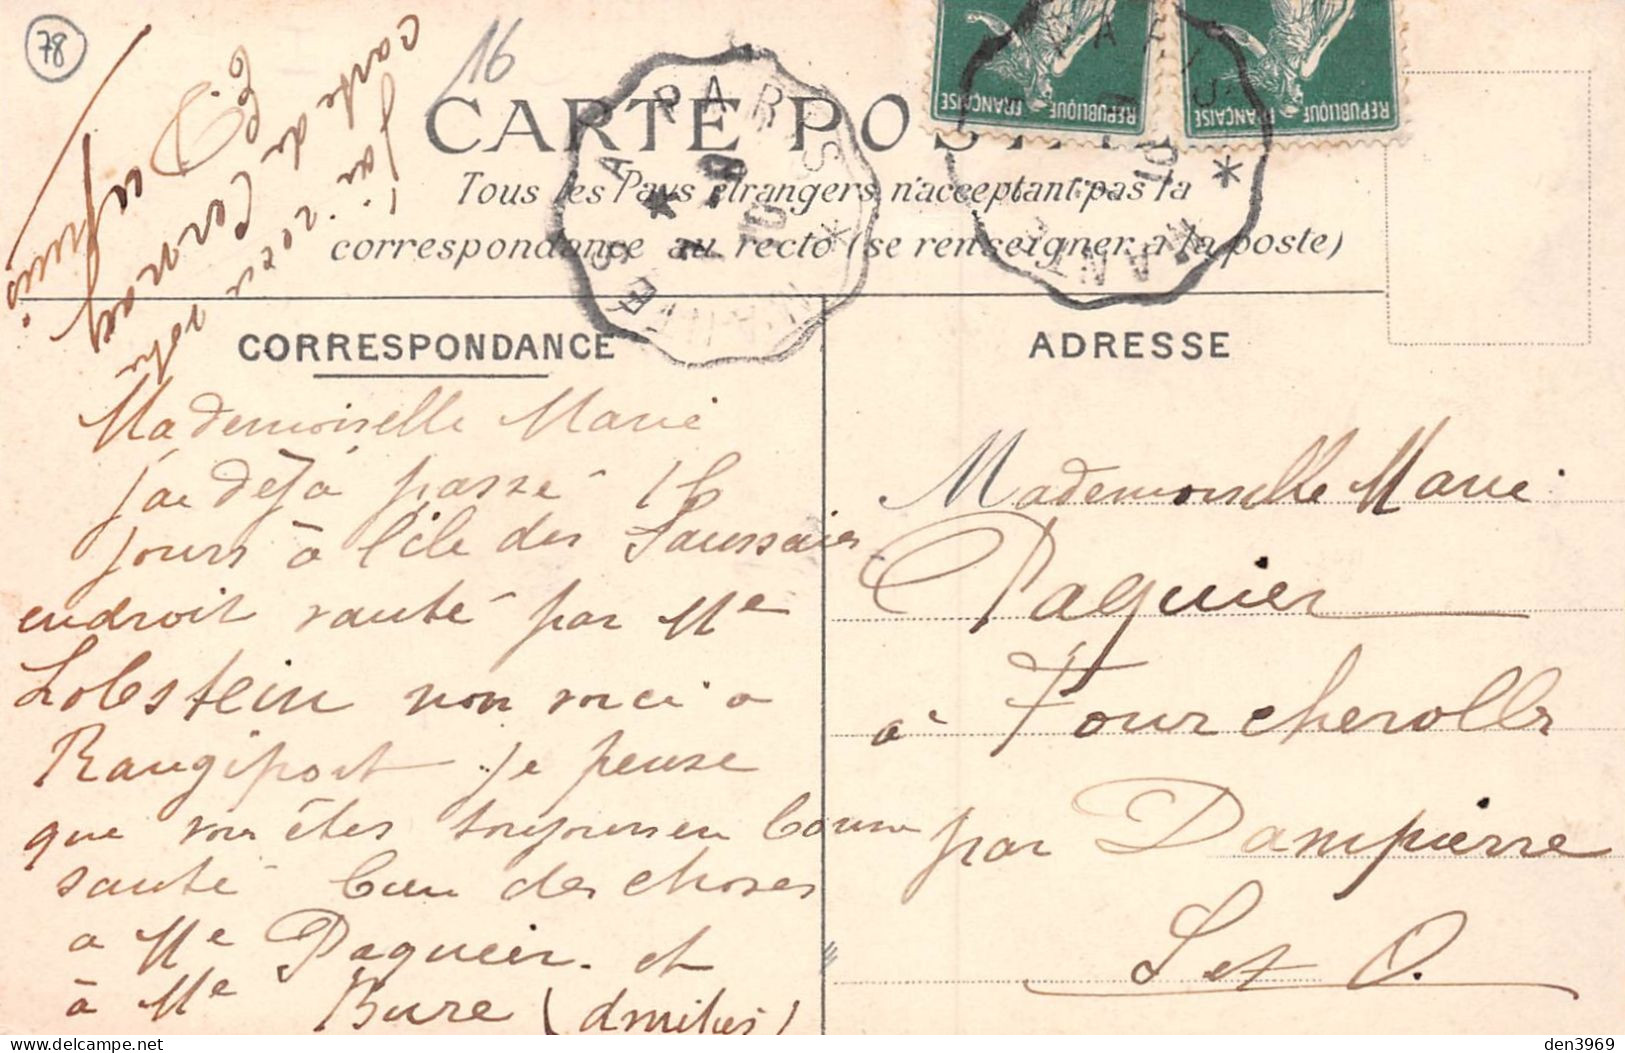 78
16
CARTE POSTALE
Tous les Pays étrangers n'acceptant pas la
correspondance au recto (se renseigner à la poste)
REPUBLIQUE FRANÇAISE
REPUBLIQUE FRANÇAISE
PARIS
A
10
MANTES
CORRESPONDANCE
ADRESSE
Mademoiselle Marie
j'ai déjà passé 16
jours à l'île des Saussaies
endroit vanté par Me
Lobstein non voici a
Rangiport je pense
que vous êtes toujours en bonne
santé bien des choses
a Me Paquier et
à Me Bure (amitiés)
J'ai reçu votre
carte de
Mademoiselle Marie
Paquier
à Fourcherolles
par Dampierre
S et O.
den3969